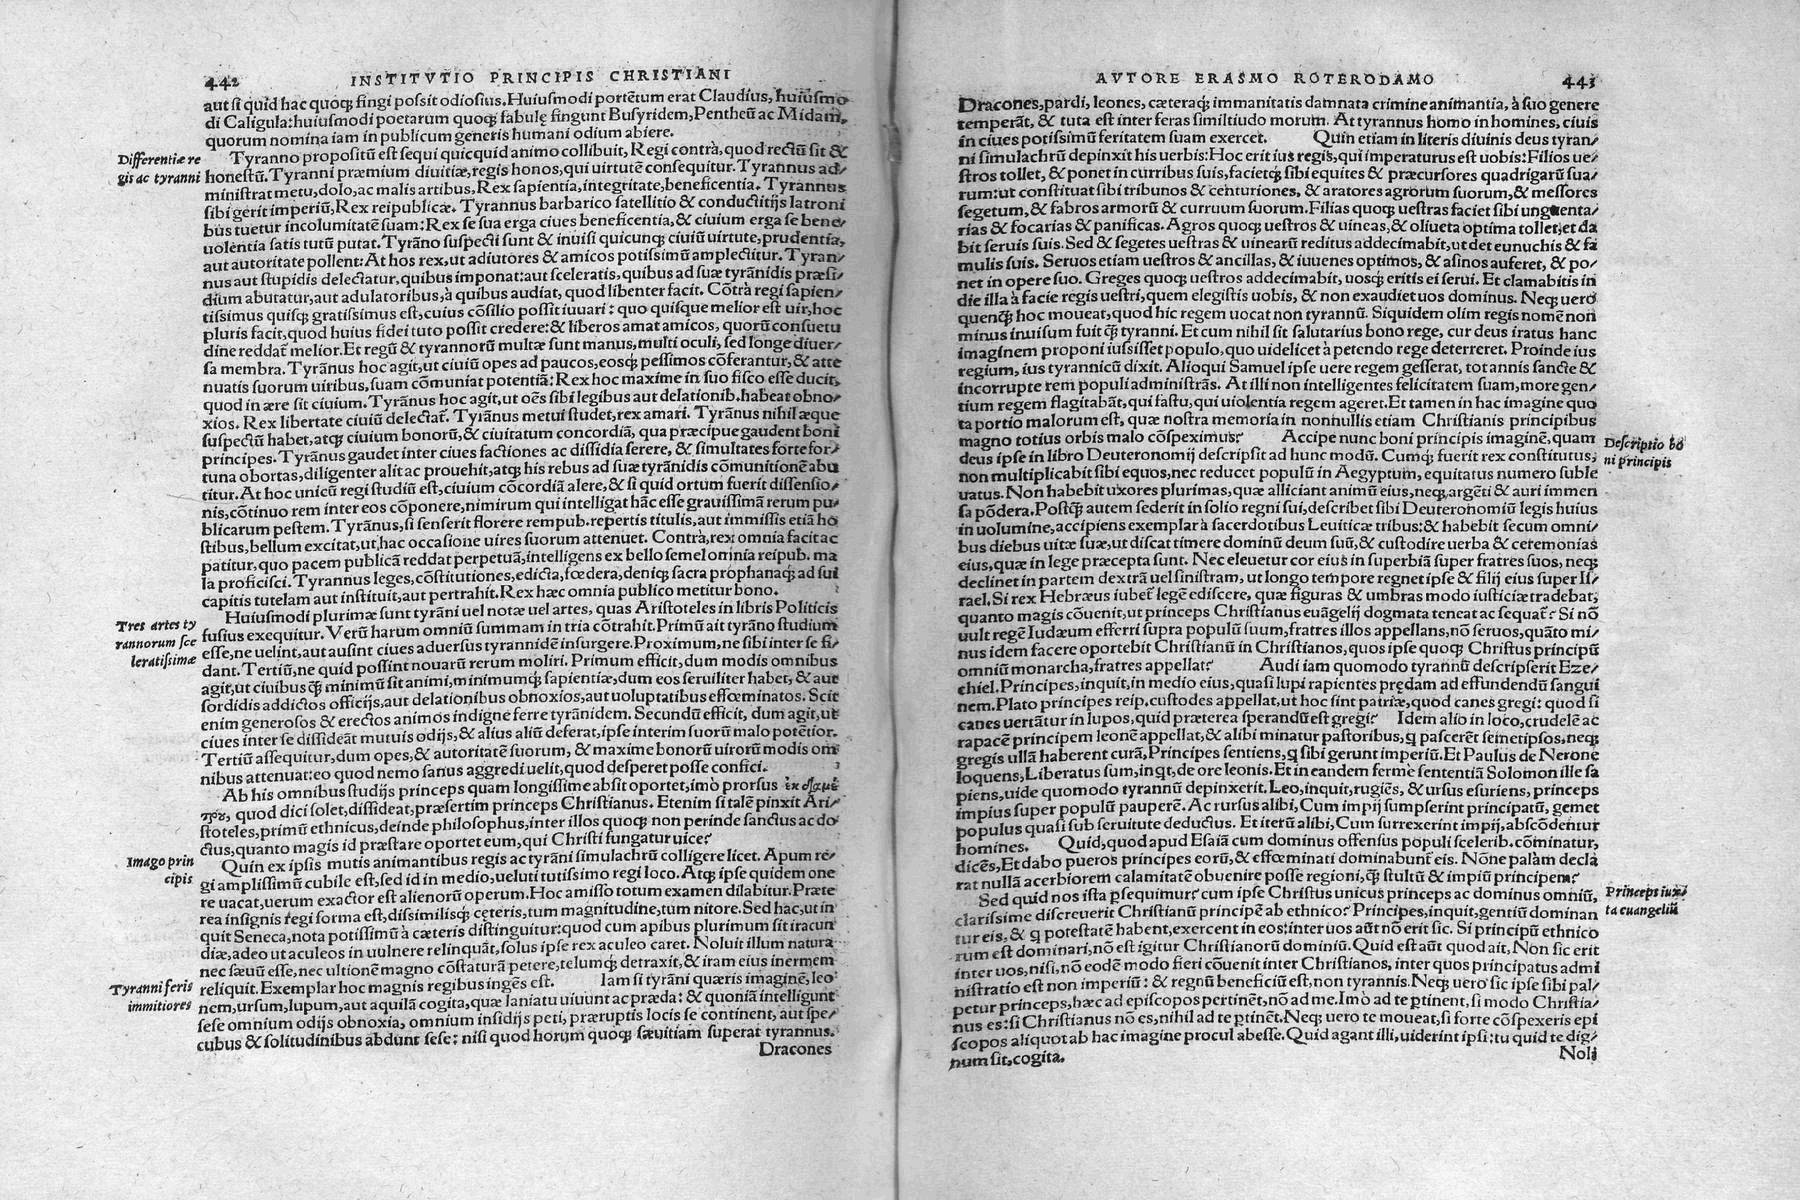 442 INSTITVTIO PRINCIPIS CHRISTIANI
aut si quid hac quoq; fingi possit odiosius. Huiusmodi portētum erat Claudius, huiusmo
di Caligula: huiusmodi poetarum quoq; fabulę fingunt Busyridem, Pentheū ac Midam,
quorum nomina iam in publicum generis humani odium abiere.
Differentiæ re
gis ac tyranni
Tyranno propositū est sequi quicquid animo collibuit, Regi contrà, quod rectū sit &
honestū. Tyranni præmium diuitiæ, regis honos, qui uirtutē consequitur. Tyrannus ad/
ministrat metu, dolo, ac malis artibus, Rex sapientia, integritate, beneficentia. Tyrannus
sibi gerit imperiū, Rex reipublicæ. Tyrannus barbarico satellitio & conductitijs latroni
bus tuetur incolumitatē suam: Rex se sua erga ciues beneficentia, & ciuium erga se bene/
uolentia satis tutū putat. Tyrāno suspecti sunt & inuisi quicunq; ciuiū uirtute, prudentia,
aut autoritate pollent: At hos rex, ut adiutores & amicos potissimū amplectitur. Tyran/
nus aut stupidis delectatur, quibus imponat: aut sceleratis, quibus ad suæ tyrānidis præsi/
dium abutatur, aut adulatoribus, à quibus audiat, quod libenter facit. Cōtrà regi sapien/
tissimus quisq; gratissimus est, cuius cōsilio possit iuuari: quo quisque melior est uir, hoc
pluris facit, quod huius fidei tuto possit credere: & liberos amat amicos, quorū consuetu
dine reddat̄ melior. Et regū & tyrannorū multæ sunt manus, multi oculi, sed longe diuer/
sa membra. Tyrānus hoc agit, ut ciuiū opes ad paucos, eosq; pessimos cōferantur, & atte
nuatis suorum uiribus, suam cōmuniat potentiā: Rex hoc maxime in suo fisco esse ducit,
quod in ære sit ciuium. Tyrānus hoc agit, ut oēs sibi legibus aut delationib. habeat obno/
xios. Rex libertate ciuiū delectat̄. Tyrānus metui studet, rex amari. Tyrānus nihil æque
suspectū habet, atq; ciuium bonorū, & ciuitatum concordiā, qua præcipue gaudent boni
principes. Tyrānus gaudet inter ciues factiones ac dissidia serere, & simultates forte for/
tuna obortas, diligenter alit ac prouehit, atq; his rebus ad suæ tyrānidis cōmunitionē abu
titur. At hoc unicū regi studiū est, ciuium cōcordiā alere, & si quid ortum fuerit dissensio/
nis, cōtinuo rem inter eos cōponere, nimirum qui intelligat hāc esse grauissimā rerum pu/
blicarum pestem. Tyrānus, si senserit florere rempub. repertis titulis, aut immissis etiā ho
stibus, bellum excitat, ut hac occasione uires suorum attenuet. Contrà, rex omnia facit ac
patitur, quo pacem publicā reddat perpetuā, intelligens ex bello semel omnia reipub. ma
la proficisci. Tyrannus leges, cōstitutiones, edicta, fœdera, deniq; sacra prophanaq; ad sui
capitis tutelam aut instituit, aut pertrahit. Rex hæc omnia publico metitur bono.
Tres artes ty
rannorum sce
leratissimæ
Huiusmodi plurimæ sunt tyrāni uel notæ uel artes, quas Aristoteles in libris Politicis
fusius exequitur. Verū harum omniū summam in tria cōtrahit. Primū ait tyrāno studium
esse, ne uelint, aut ausint ciues aduersus tyrannidē insurgere. Proximum, ne sibi inter se fi/
dant. Tertiū, ne quid possint nouarū rerum moliri. Primum efficit, dum modis omnibus
agit, ut ciuibus q̄ minimū sit animi, minimumq; sapientiæ, dum eos seruiliter habet, & aut
sordidis addictos officijs, aut delationibus obnoxios, aut uoluptatibus effœminatos. Scit
enim generosos & erectos animos indigne ferre tyrānidem. Secundū efficit, dum agit, ut
ciues inter se dissideāt mutuis odijs, & alius aliū deferat, ipse interim suorū malo potētior.
Tertiū assequitur, dum opes, & autoritatē suorum, & maxime bonorū uirorū modis om
nibus attenuat: eo quod nemo sanus aggredi uelit, quod desperet posse confici.
Ab his omnibus studijs princeps quam longissime absit oportet, imò prorsus ἐκ διαμέ
τρου, quod dici solet, dissideat, præsertim princeps Christianus. Etenim si talē pinxit Ari/
stoteles, primū ethnicus, deinde philosophus, inter illos quoq; non perinde sanctus ac do
ctus, quanto magis id præstare oportet eum, qui Christi fungatur uice?
Imago prin
cipis
Quin ex ipsis mutis animantibus regis ac tyrāni simulachrū colligere licet. Apum re/
gi amplissimū cubile est, sed id in medio, ueluti tutissimo regi loco. Atq; ipse quidem one
re uacat, uerum exactor est alienorū operum. Hoc amisso totum examen dilabitur. Præte
rea insignis regi forma est, dissimilisq; ceteris, tum magnitudine, tum nitore. Sed hac, ut in
quit Seneca, nota potissimū à cæteris distinguitur: quod cum apibus plurimum sit iracun
diæ, adeo ut aculeos in uulnere relinquāt, solus ipse rex aculeo caret. Noluit illum natura
nec sæuū esse, nec ultionē magno cōstaturā petere, telumq; detraxit, & iram eius inermem
reliquit. Exemplar hoc magnis regibus ingēs est. Iam si tyrāni quæris imaginē, leo/
Tyranni feris
immitiores
nem, ursum, lupum, aut aquilā cogita, quæ laniatu uiuunt ac præda: & quoniā intelligunt
sese omnium odijs obnoxia, omnium insidijs peti, præruptis locis se continent, aut spe/
cubus & solitudinibus abdunt sese: nisi quod horum quoq; sæuitiam superat tyrannus.
Dracones
AVTORE ERASMO ROTERODAMO 443
Dracones, pardi, leones, cæteraq; immanitatis damnata crimine animantia, à suo genere
temperāt, & tuta est inter feras similtiudo morum. At tyrannus homo in homines, ciuis
in ciues potissimū feritatem suam exercet. Quin etiam in literis diuinis deus tyran/
ni simulachrū depinxit his uerbis: Hoc erit ius regis, qui imperaturus est uobis: Filios ue/
stros tollet, & ponet in curribus suis, facietq; sibi equites & præcursores quadrigarū sua/
rum: ut constituat sibi tribunos & centuriones, & aratores agrorum suorum, & messores
segetum, & fabros armorū & curruum suorum. Filias quoq; uestras faciet sibi unguenta/
rias & focarias & panificas. Agros quoq; uestros & uineas, & oliueta optima tollet, et da
bit seruis suis. Sed & segetes uestras & uinearū reditus addecimabit, ut det eunuchis & fa
mulis suis. Seruos etiam uestros & ancillas, & iuuenes optimos, & asinos auferet, & po/
net in opere suo. Greges quoq; uestros addecimabit, uosq; eritis ei serui. Et clamabitis in
die illa à facie regis uestri, quem elegistis uobis, & non exaudiet uos dominus. Neq; uero
quenq; hoc moueat, quod hic regem uocat non tyrannū. Siquidem olim regis nomē non
minus inuisum fuit q̄ tyranni. Et cum nihil sit salutarius bono rege, cur deus iratus hanc
imaginem proponi iussisset populo, quo uidelicet à petendo rege deterreret. Proinde ius
regium, ius tyrannicū dixit. Alioqui Samuel ipse uere regem gesserat, tot annis sancte &
incorrupte rem populi administrās. At illi non intelligentes felicitatem suam, more gen/
tium regem flagitabāt, qui fastu, qui uiolentia regem ageret. Et tamen in hac imagine quo
ta portio malorum est, quæ nostra memoria in nonnullis etiam Christianis principibus
magno totius orbis malo cōspeximus? Accipe nunc boni principis imaginē, quam
Descriptio bo
ni principis
deus ipse in libro Deuteronomij descripsit ad hunc modū. Cumq; fuerit rex constitutus,
non multiplicabit sibi equos, nec reducet populū in Aegyptum, equitatus numero suble
uatus. Non habebit uxores plurimas, quæ alliciant animū eius, neq; argēti & auri immen
sa pōdera. Postq̄ autem sederit in solio regni sui, describet sibi Deuteronomiū legis huius
in uolumine, accipiens exemplar à sacerdotibus Leuiticæ tribus: & habebit secum omni/
bus diebus uitæ suæ, ut discat timere dominū deum suū, & custodire uerba & ceremonias
eius, quæ in lege præcepta sunt. Nec eleuetur cor eius in superbiā super fratres suos, neq;
declinet in partem dextrā uel sinistram, ut longo tempore regnet ipse & filij eius super Is/
rael. Si rex Hebræus iubet̄ legē ediscere, quæ figuras & umbras modo iusticiæ tradebat,
quanto magis cōuenit, ut princeps Christianus euāgelij dogmata teneat ac sequat̄? Si nō
uult regē Iudæum efferri supra populū suum, fratres illos appellans, nō seruos, quāto mi/
nus idem facere oportebit Christianū in Christianos, quos ipse quoq; Christus principū
omniū monarcha, fratres appellat? Audi iam quomodo tyrannū descripserit Eze/
chiel. Principes, inquit, in medio eius, quasi lupi rapientes prędam ad effundendū sangui
nem. Plato principes reip. custodes appellat, ut hoc sint patriæ, quod canes gregi: quod si
canes uertātur in lupos, quid præterea sperandū est gregi? Idem alio in loco, crudelē ac
rapacē principem leonē appellat, & alibi minatur pastoribus, q pascerēt semetipsos, neq;
gregis ullā haberent curā, Principes sentiens, q sibi gerunt imperiū. Et Paulus de Nerone
loquens, Liberatus sum, inqt, de ore leonis. Et in eandem ferme sententiā Solomon ille sa
piens, uide quomodo tyrannū depinxerit. Leo, inquit, rugiēs, & ursus esuriens, princeps
impius super populū pauperē. Ac rursus alibi, Cum impij sumpserint principatū, gemet
populus quasi sub seruitute deductus. Et iterū alibi, Cum surrexerint impij, abscōdentur
homines. Quid, quod apud Esaiā cum dominus offensus populi scelerib. cōminatur,
dicēs, Et dabo pueros principes eorū, & effœminati dominabunt̄ eis. Nōne palàm decla
rat nullā acerbiorem calamitatē obuenire posse regioni, q̄ stultū & impiū principem?
Princeps iux/
ta euangeliū
Sed quid nos ista psequimur? cum ipse Christus unicus princeps ac dominus omniū,
clarissime discreuerit Christianū principē ab ethnico? Principes, inquit, gentiū dominan
tur eis, & q potestatē habent, exercent in eos: inter uos aūt nō erit sic. Si principū ethnico
rum est dominari, nō est igitur Christianorū dominiū. Quid est aūt quod ait, Non sic erit
inter uos, nisi, nō eodē modo fieri cōuenit inter Christianos, inter quos principatus admi
nistratio est non imperiū: & regnū beneficiū est, non tyrannis. Neq; uero sic ipse sibi pal/
petur princeps, hæc ad episcopos pertinēt, nō ad me. Imò ad te ptinent, si modo Christia/
nus es: si Christianus nō es, nihil ad te ptinēt. Neq; uero te moueat, si forte cōspexeris epi
scopos aliquot ab hac imagine procul abesse. Quid agant illi, uiderint ipsi: tu quid te dig/
num sit, cogita.
Noli